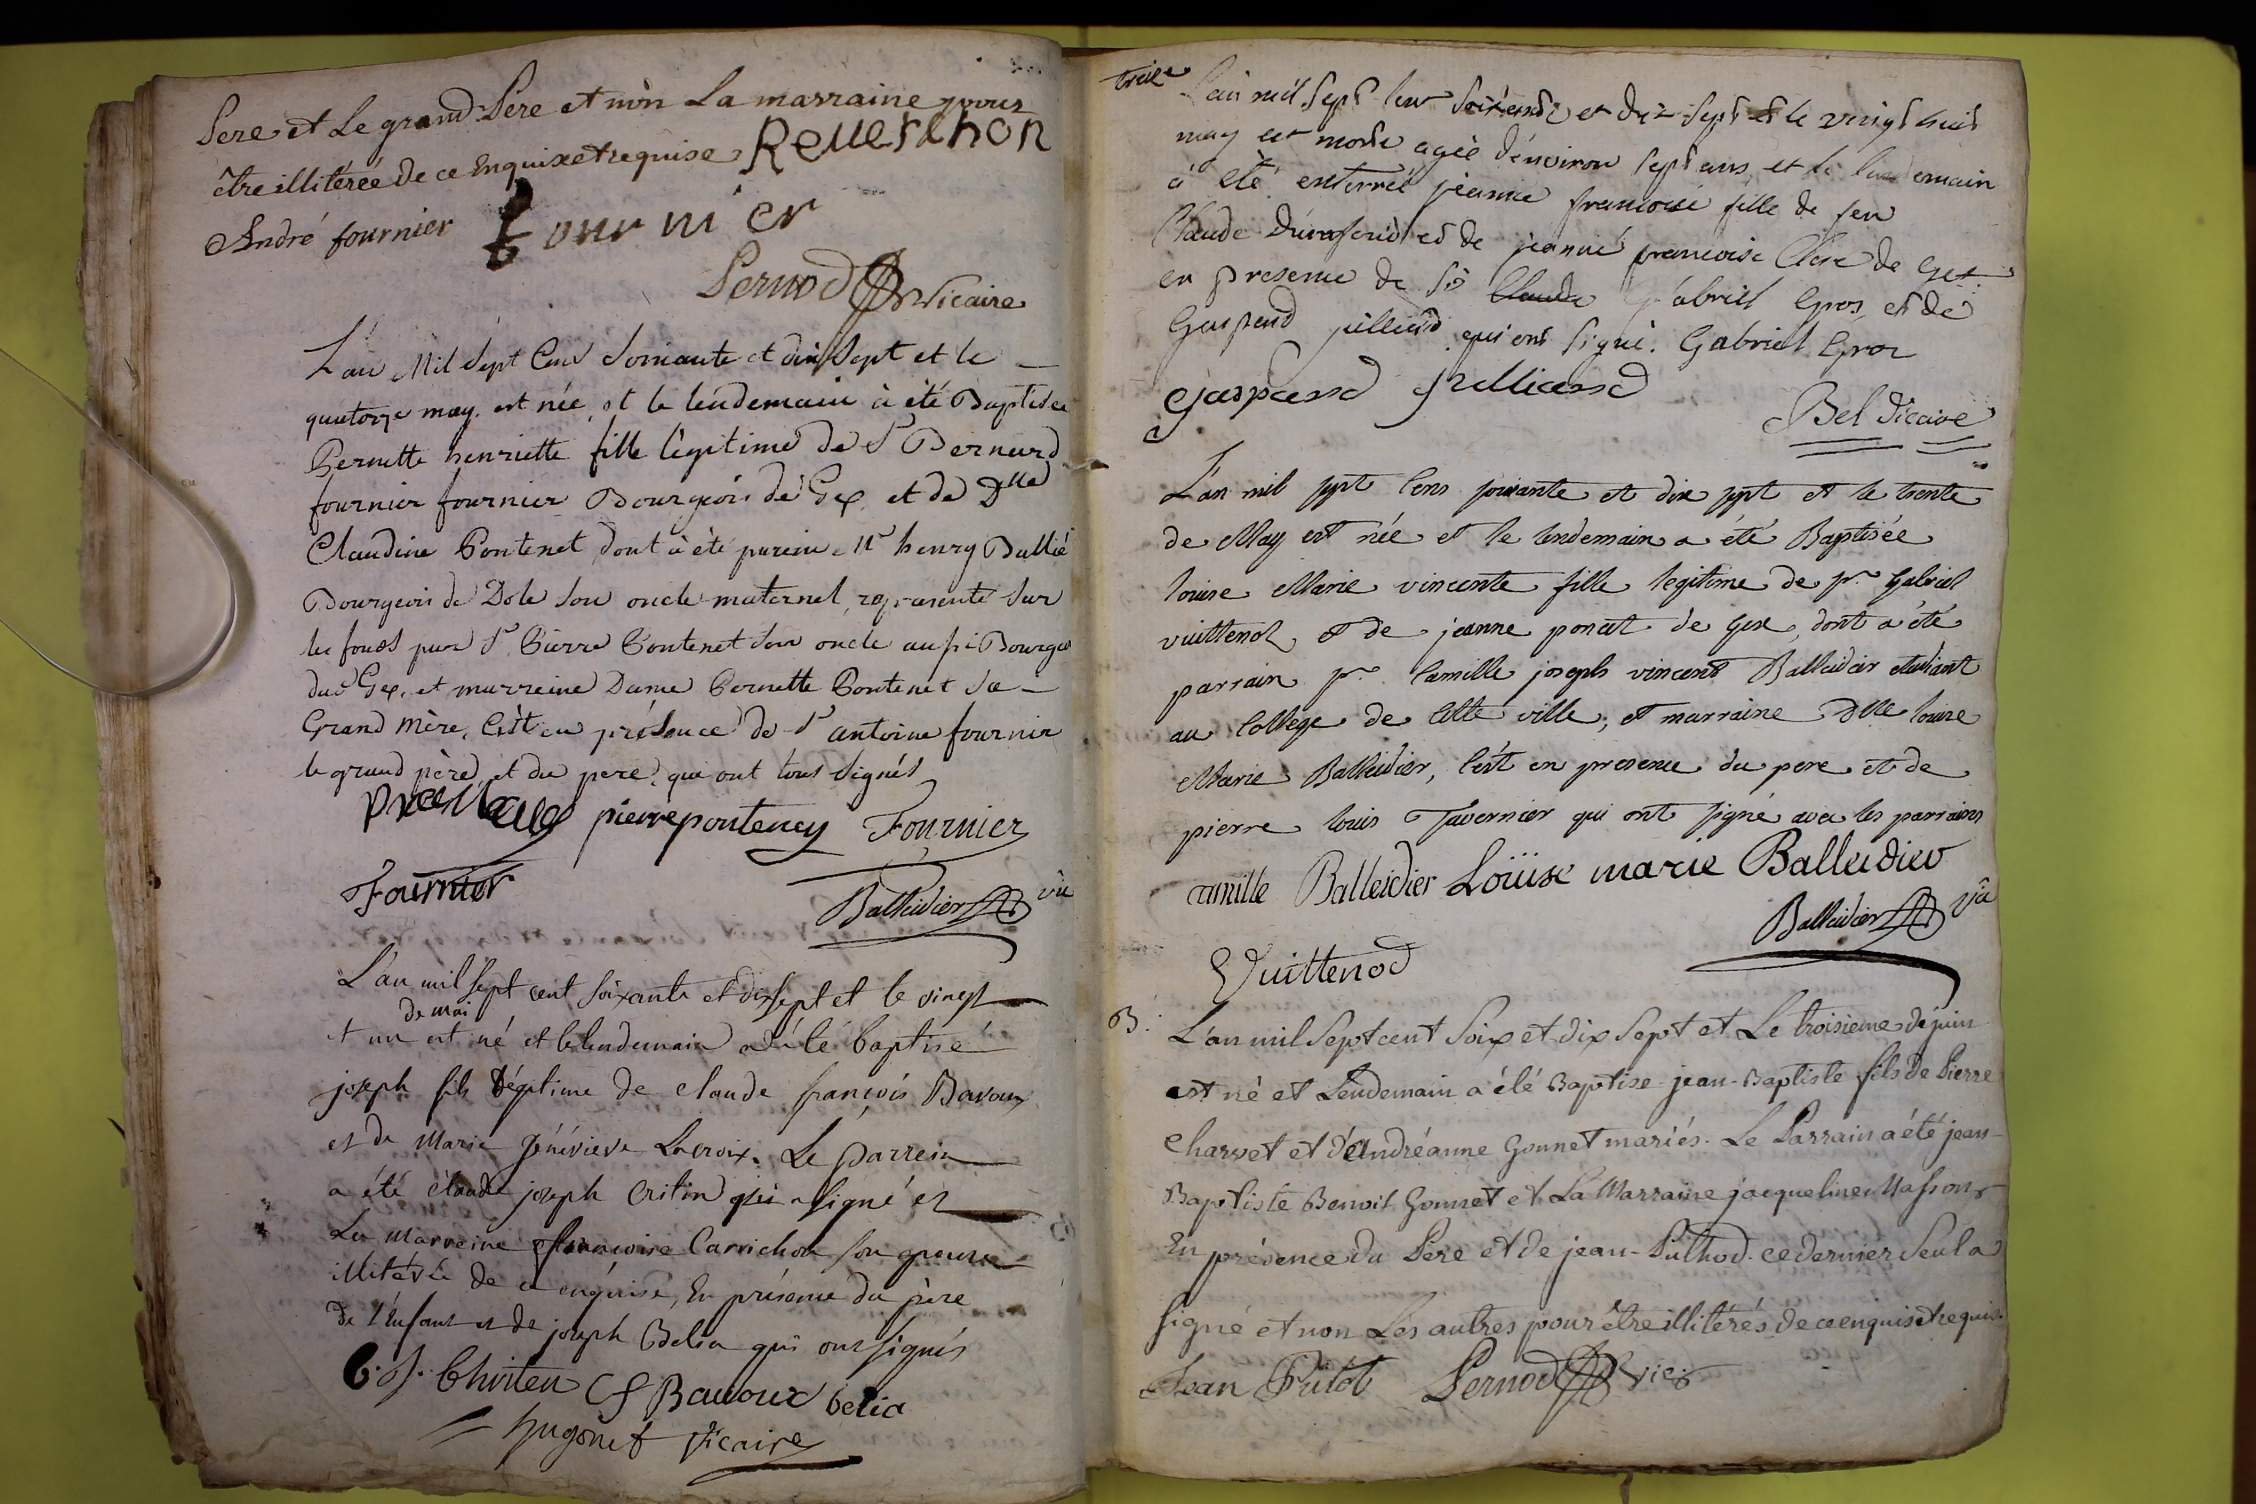 Pere et Le grand Pere et nòn La marraine pour
être illitérée de ce Enquise et requise Reverchon
André fournier fournier
Pernod Vicaire
L'an Mil Sept Cent Soixante et dix Sept et le
quatorze may est née et le lendemain à été Baptisée
Pernette henriette fille légitime de Sr Bernard
fournier fournier Bourgeois de Gex et de Dlle
Claudine Pontenet dont à été parein Mr henry Ballié
Bourgeois de Dole son oncle maternel, représenté sur
les fonds par Sr Pierre Pontenet son oncle aussi Bourgeois
dud Gex, et marreine Dame Pernette Pontenet sa
Grand Mère, C'est en présence de Sr antoine fournier
le grand père et du pere, qui ont tous signés
pierre ponteney Fournier
Fournier
Balleidier vic
L'an mil sept cent soixante et dix sept et le vingt
de mai
et un est né et le lendemain a été baptisé
joseph fils légitime de claude françois Bavoux
et de Marie Généviève Lacroix. Le parrein
a été claude joseph Critin qui a signé et
La Marreine françoise Carrichon son
illitérée de ce enquise, En présence du père
de l'Enfant et de joseph Belia qui ont signés
C. J. Chriten Cf Bavoux belia
hugonet Vicaire
L'an mil Sept Cent Soixante et dix Sept et le vingt huit
may est morte agée d'environ sept ans, et le lendemain
a été enterrée jeanne francoise fille de feu
Claude et de jeanne francoise Clerc de Gex
en presence de Sr Claude Gabriel Gros, et de
Gaspard qui ont signé. Gabriel Gros
Gaspard
Bel Vicaire
L'an mil sept cens soixante et dix sept et le trente
de May est née et le lendemain a été Baptisée
louise Marie vincente fille legitime de sr Gabriel
vuittenod, et de jeanne poncet de Gex, dont a été
parrain sr Camille joseph vincent Balleidier etudiant
au College de Cette ville; et marraine Dlle louise
Marie Balleidier, C'est en presence du pere et de
pierre louis Tavernier qui ont signé avec les parrains
Camille Balleidier Loüise marie Balleidier
Balleidier vic
Vuittenod
B.
L'an mil Sept cent Soix et dix Sept et Le troisieme de juin
est né et Lendemain a été Baptise jean-Baptiste fils de Pierre
Charvet et d'andréanne Gonnet mariés. Le Parrain a été jean-
Baptiste Benoit Gonnet et La Marraine jacqueline Masson
En présence du Père et de jean-Puthod. ce dernier Seul a
signé et non Les autres pour être illitérés de ce enquis et requis.
Jean Putot Pernod vic